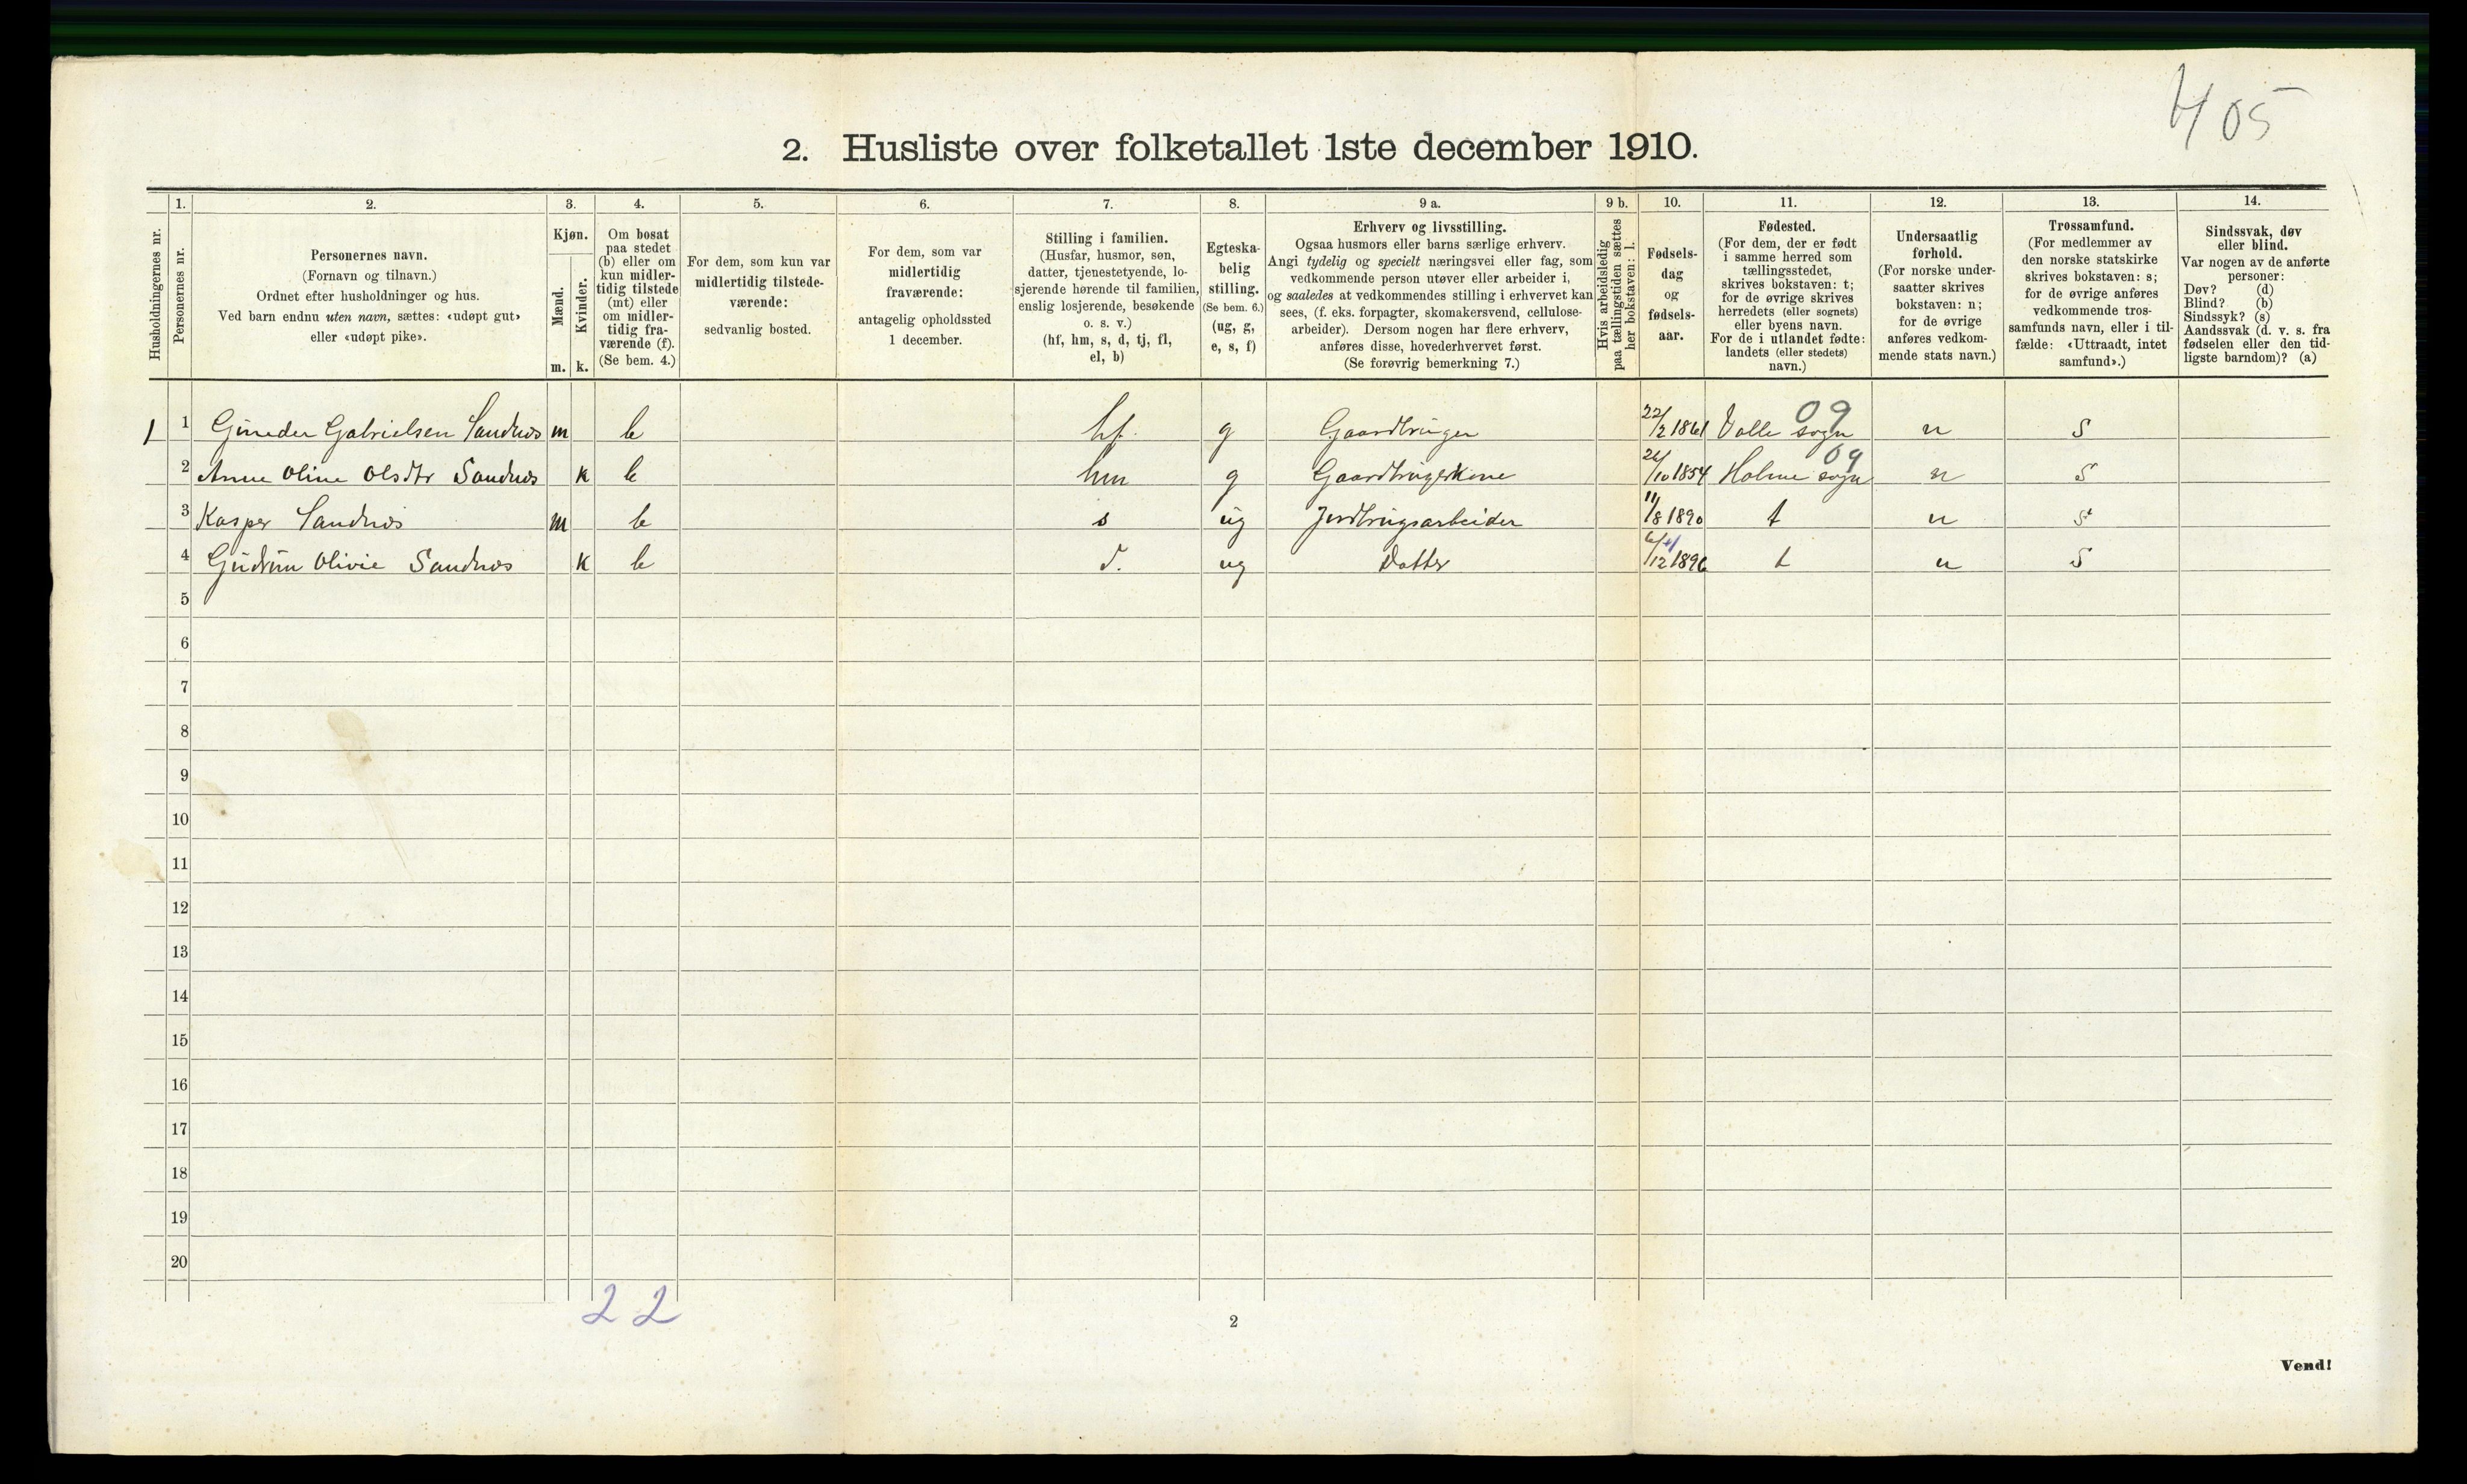 405
2. Husliste over folketallet 1ste december 1910.
Husholdningernes nr.
1.
Personernes nr.
2.
Personernes navn.
(Fornavn og tilnavn.)
Ordnet efter husholdninger og hus.
Ved barn endnu uten navn, sættes: «udøpt gut»
eller «udøpt pike».
3.
Kjøn.
Mænd.
Kvinder.
m. k.
4.
Om bosat
paa stedet
(b) eller om
kun midler-
tidig tilstede
(mt) eller
om midler-
tidig fra-
værende (f).
(Se bem. 4.)
5.
For dem, som kun var
midlertidig tilstede-
værende:
sedvanlig bosted.
6.
For dem, som var
midlertidig
fraværende:
antagelig opholdssted
1 december.
7.
Stilling i familien.
(Husfar, husmor, søn,
datter, tjenestetyende, lo-
sjerende hørende til familien,
enslig losjerende, besøkende
o. s. v.)
(hf, hm, s, d, tj, fl,
el, b)
8.
Egteska-
belig
stilling.
(Se bem. 6.)
(ug, g,
e, s, f)
9 a.
Erhverv og livsstilling.
Ogsaa husmors eller barns særlige erhverv.
Angi tydelig og specielt næringsvei eller fag, som
vedkommende person utøver eller arbeider i,
og saaledes at vedkommendes stilling i erhvervet kan
sees, (f. eks. forpagter, skomakersvend, cellulose-
arbeider). Dersom nogen har flere erhverv,
anføres disse, hovederhvervet først.
(Se forøvrig bemerkning 7.)
9 b.
Hvis arbeidsledig
paa tællingstiden sættes
her bokstaven: l.
10.
Fødsels-
dag
og
fødsels-
aar.
11.
Fødested.
(For dem, der er født
i samme herred som
tællingsstedet,
skrives bokstaven: t;
for de øvrige skrives
herredets (eller sognets)
eller byens navn.
For de i utlandet fødte:
landets (eller stedets)
navn.)
12.
Undersaatlig
forhold.
(For norske under-
saatter skrives
bokstaven: n;
for de øvrige
anføres vedkom-
mende stats navn.)
13.
Trossamfund.
(For medlemmer av
den norske statskirke
skrives bokstaven: s;
for de øvrige anføres
vedkommende tros-
samfunds navn, eller i til-
fælde: «Uttraadt, intet
samfund».)
14.
Sindssvak, døv
eller blind.
Var nogen av de anførte
personer:
Døv? (d)
Blind? (b)
Sindssyk? (s)
Aandssvak (d. v. s. fra
fødselen eller den tid-
ligste barndom)? (a)
1 1 Guneder Gabrielsen Sandnæs m b hf g Gaardbruger 22/2 1861 Valle sogn 09 n S
2 Anne Oline Olsdtr Sandnæs k b hm g Gaardbrugerkone /10 1854 Holme sogn 09 n S
3 Kasper Sandnæs m b s ug Jordbrugsarbeider 11/8 1890 t n S
4 Gudrun Olivie Sandnæs k b d. ug Datter 6/12 1896 t n S
5
6
7
8
9
10
11
12
13
14
15
16
17
18
19
20
2 2
2
Vend!